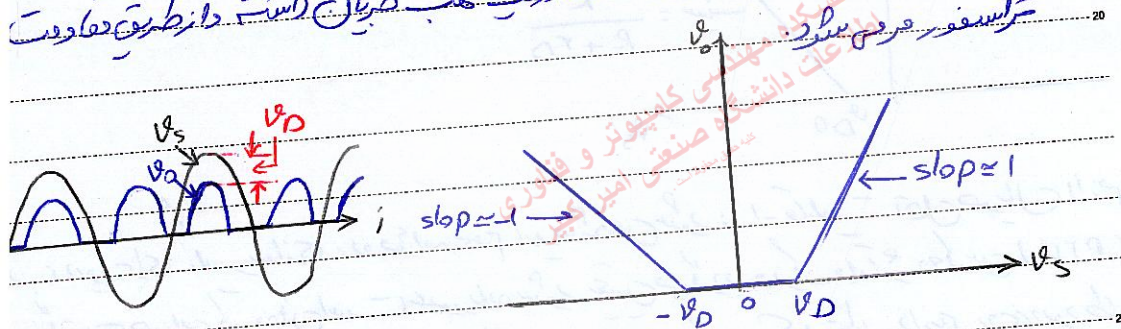 جریان داشته و از طریق مقاومت
ترانسفور مر می شود.
20
دانشکده مهندسی کامپیوتر و فناوری
اطلاعات دانشگاه صنعتی امیرکبیر
v_s
v_o
v_D
i
v_o
slop≃-1
slop≃1
-v_D
0
v_D
v_s
2